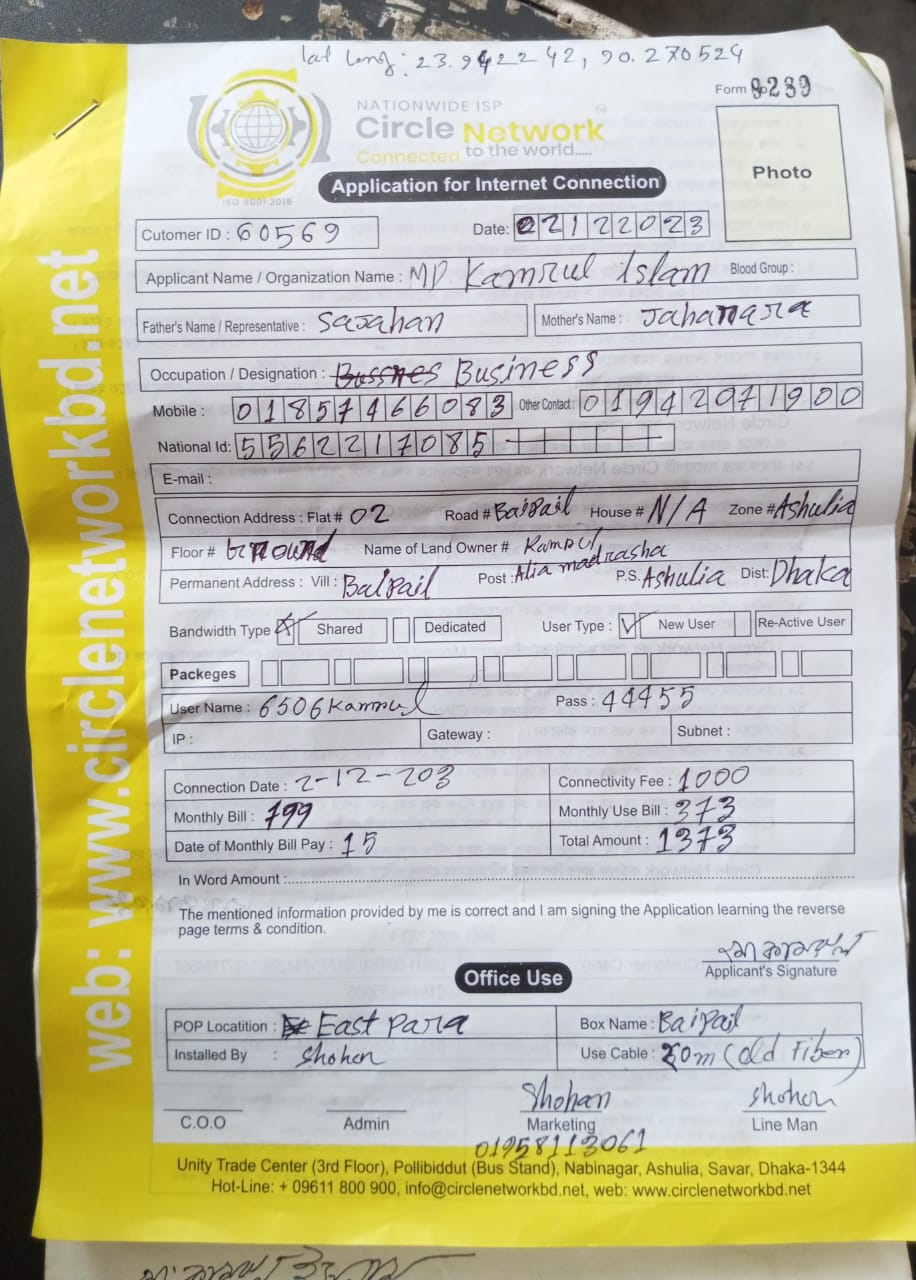 lat long: 23.942242, 90.270524
Form No 9239
NATIONWIDE ISP
Circle Network
Connected to the world.....
ISO 9001:2015
Photo
Application for Internet Connection
Cutomer ID : 60569
Date: 02122023
Applicant Name / Organization Name : MD. Kamrul Islam Blood Group :
Father's Name / Representative : Sajahan Mother's Name : Jahanara
Occupation / Designation : Business
Mobile : 01857466083 Other Contact : 01942071900
National Id: 5562217085
E-mail :
Connection Address : Flat # 02 Road # Baipail House # N/A Zone # Ashulia
Floor # Ground Name of Land Owner # Kamrul
Permanent Address : Vill : Baipail Post : Alia madrasha P.S. Ashulia Dist: Dhaka
Bandwidth Type Shared Dedicated User Type : New User Re-Active User
Packeges
User Name : 6506Kamrul Pass : 44455
IP : Gateway : Subnet :
Connection Date : 2-12-203 Connectivity Fee : 1000
Monthly Bill : 799 Monthly Use Bill : 373
Date of Monthly Bill Pay : 15 Total Amount : 1373
In Word Amount :
The mentioned information provided by me is correct and I am signing the Application learning the reverse
page terms & condition.
Applicant's Signature
Office Use
POP Locatition : East Para Box Name : Baipail
Installed By : Shohan Use Cable : 20m (Old Fiber)
Shohan Shohan
C.O.O Admin Marketing Line Man
01958113061
Unity Trade Center (3rd Floor), Pollibiddut (Bus Stand), Nabinagar, Ashulia, Savar, Dhaka-1344
Hot-Line: + 09611 800 900, info@circlenetworkbd.net, web: www.circlenetworkbd.net
web: www.circlenetworkbd.net